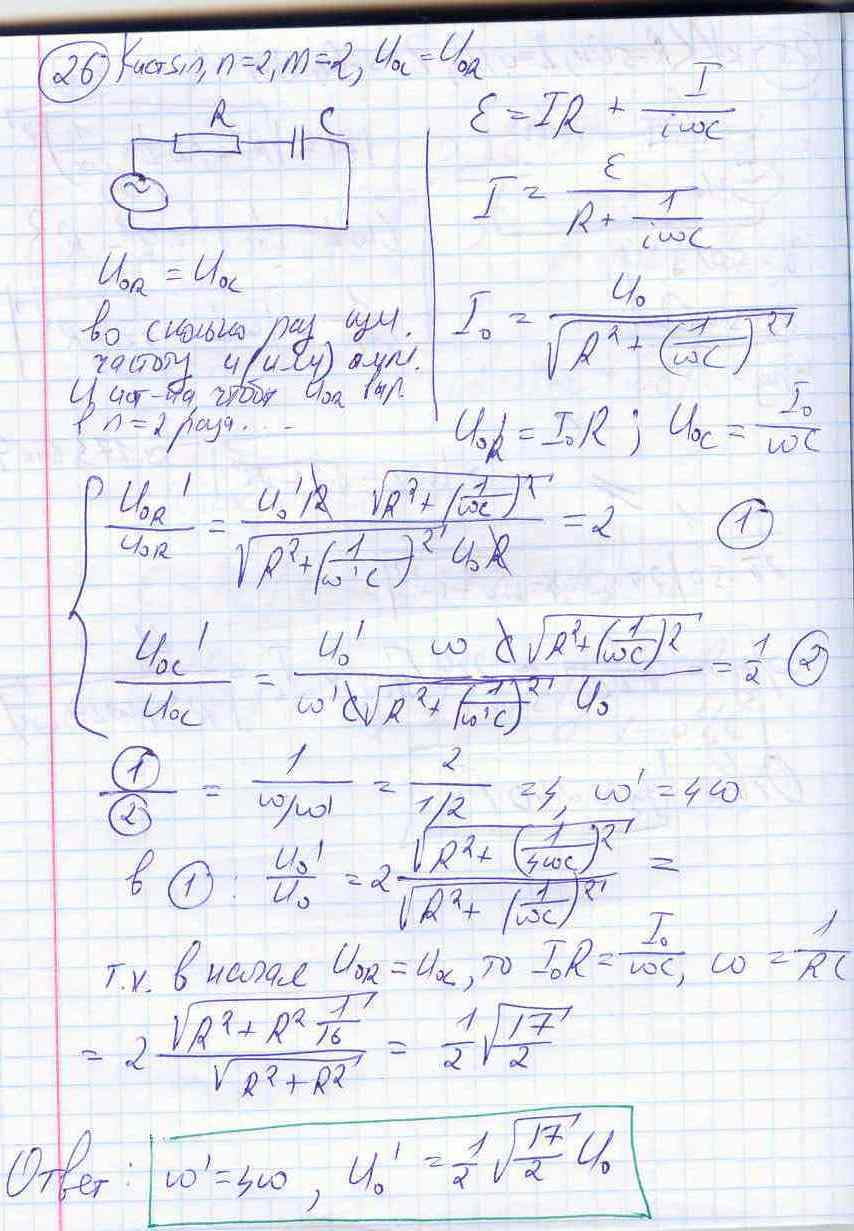 26 К ист sin, n=2, m=2, U₀C = U₀R
R C
~
U₀R = U₀C
во сколько раз изм.
частоту и (или) ампл.
U ист-ка чтобы U₀R
в n=2 раза....
ℰ = IR + I/(iωC)
I = ℰ/(R + 1/(iωC))
I₀ = U₀/√(R² + (1/(ωC))²)
U₀R = I₀R ; U₀C = I₀/(ωC)
U₀R'/U₀R = (U₀'R √(R² + (1/(ωC))²))/(√(R² + (1/(ω'C))²) U₀R) = 2 ①
U₀C'/U₀C = (U₀' ω C √(R² + (1/(ωC))²))/(ω'C √(R² + (1/(ω'C))²) U₀) = 1/2 ②
①/② = 1/(ω/ω') = 2/(1/2) = 4, ω' = 4ω
в ① : U₀'/U₀ = 2 √(R² + (1/(4ωC))²)/√(R² + (1/(ωC))²) =
т.к. в начале U₀R = U₀C, то I₀R = I₀/(ωC), ω = 1/(RC)
= 2 √(R² + R² 1/16)/√(R² + R²) = 1/2 √(17/2)
Ответ: ω' = 4ω , U₀' = 1/2 √(17/2) U₀